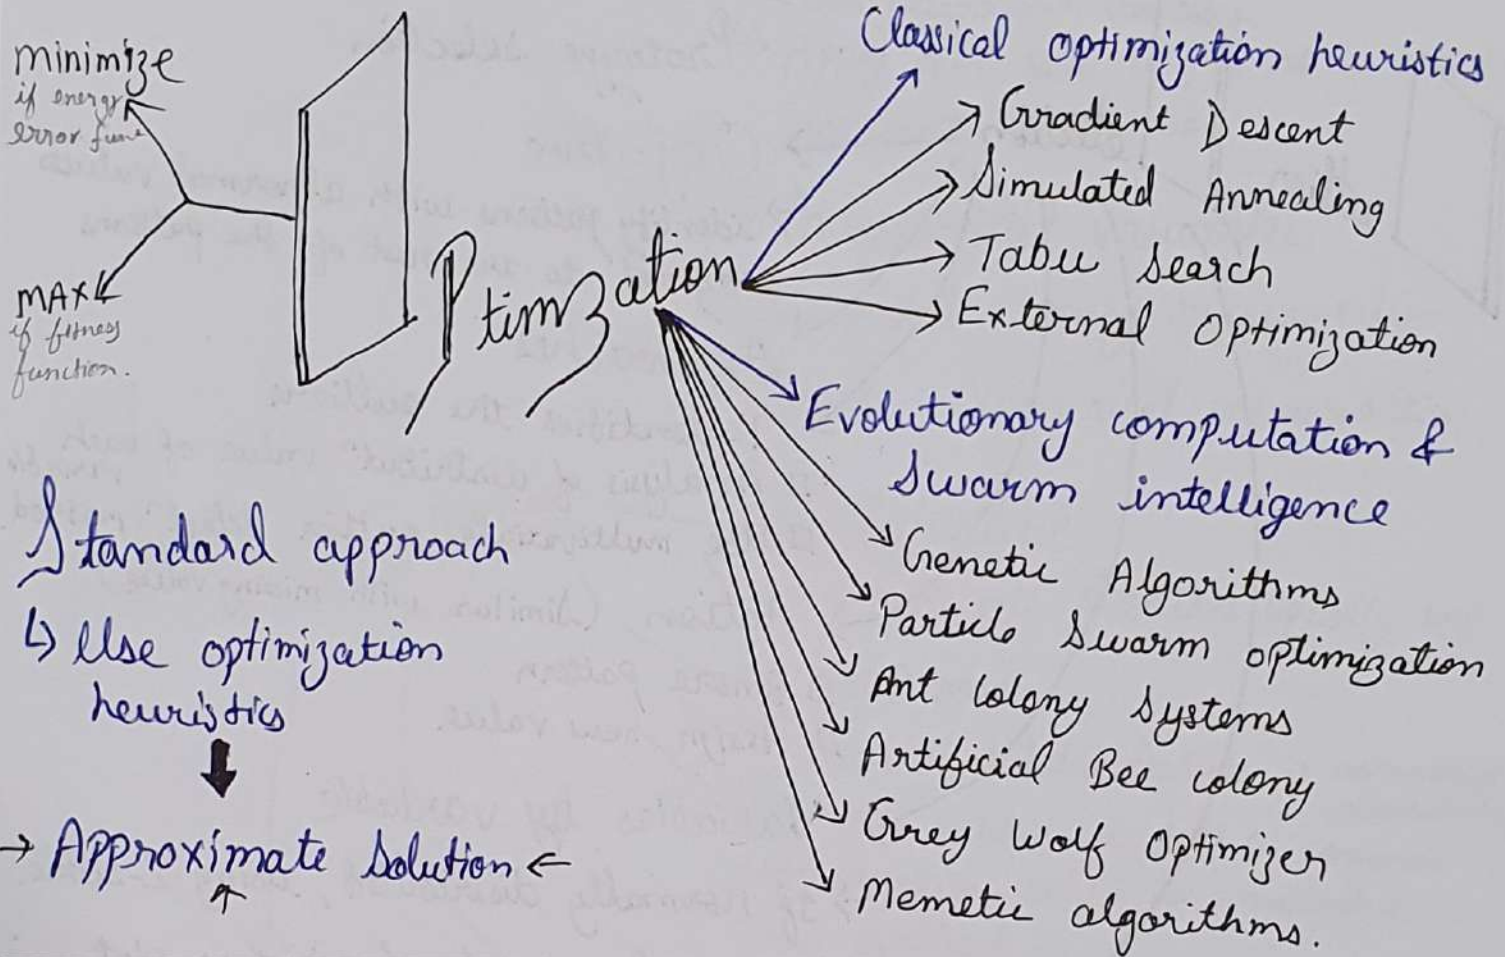 minimize
if energy
error func
MAX
if fitness
function.
OPtimzation
Classical optimization heuristics
Gradient Descent
Simulated Annealing
Tabu Search
External Optimization
Evolutionary computation &
Swarm intelligence
Genetic Algorithms
Particle Swarm optimization
Ant Colony Systems
Artificial Bee colony
Grey Wolf Optimizer
Memetic algorithms.
Standard approach
↳ Use optimization
heuristics
→ Approximate Solution ←